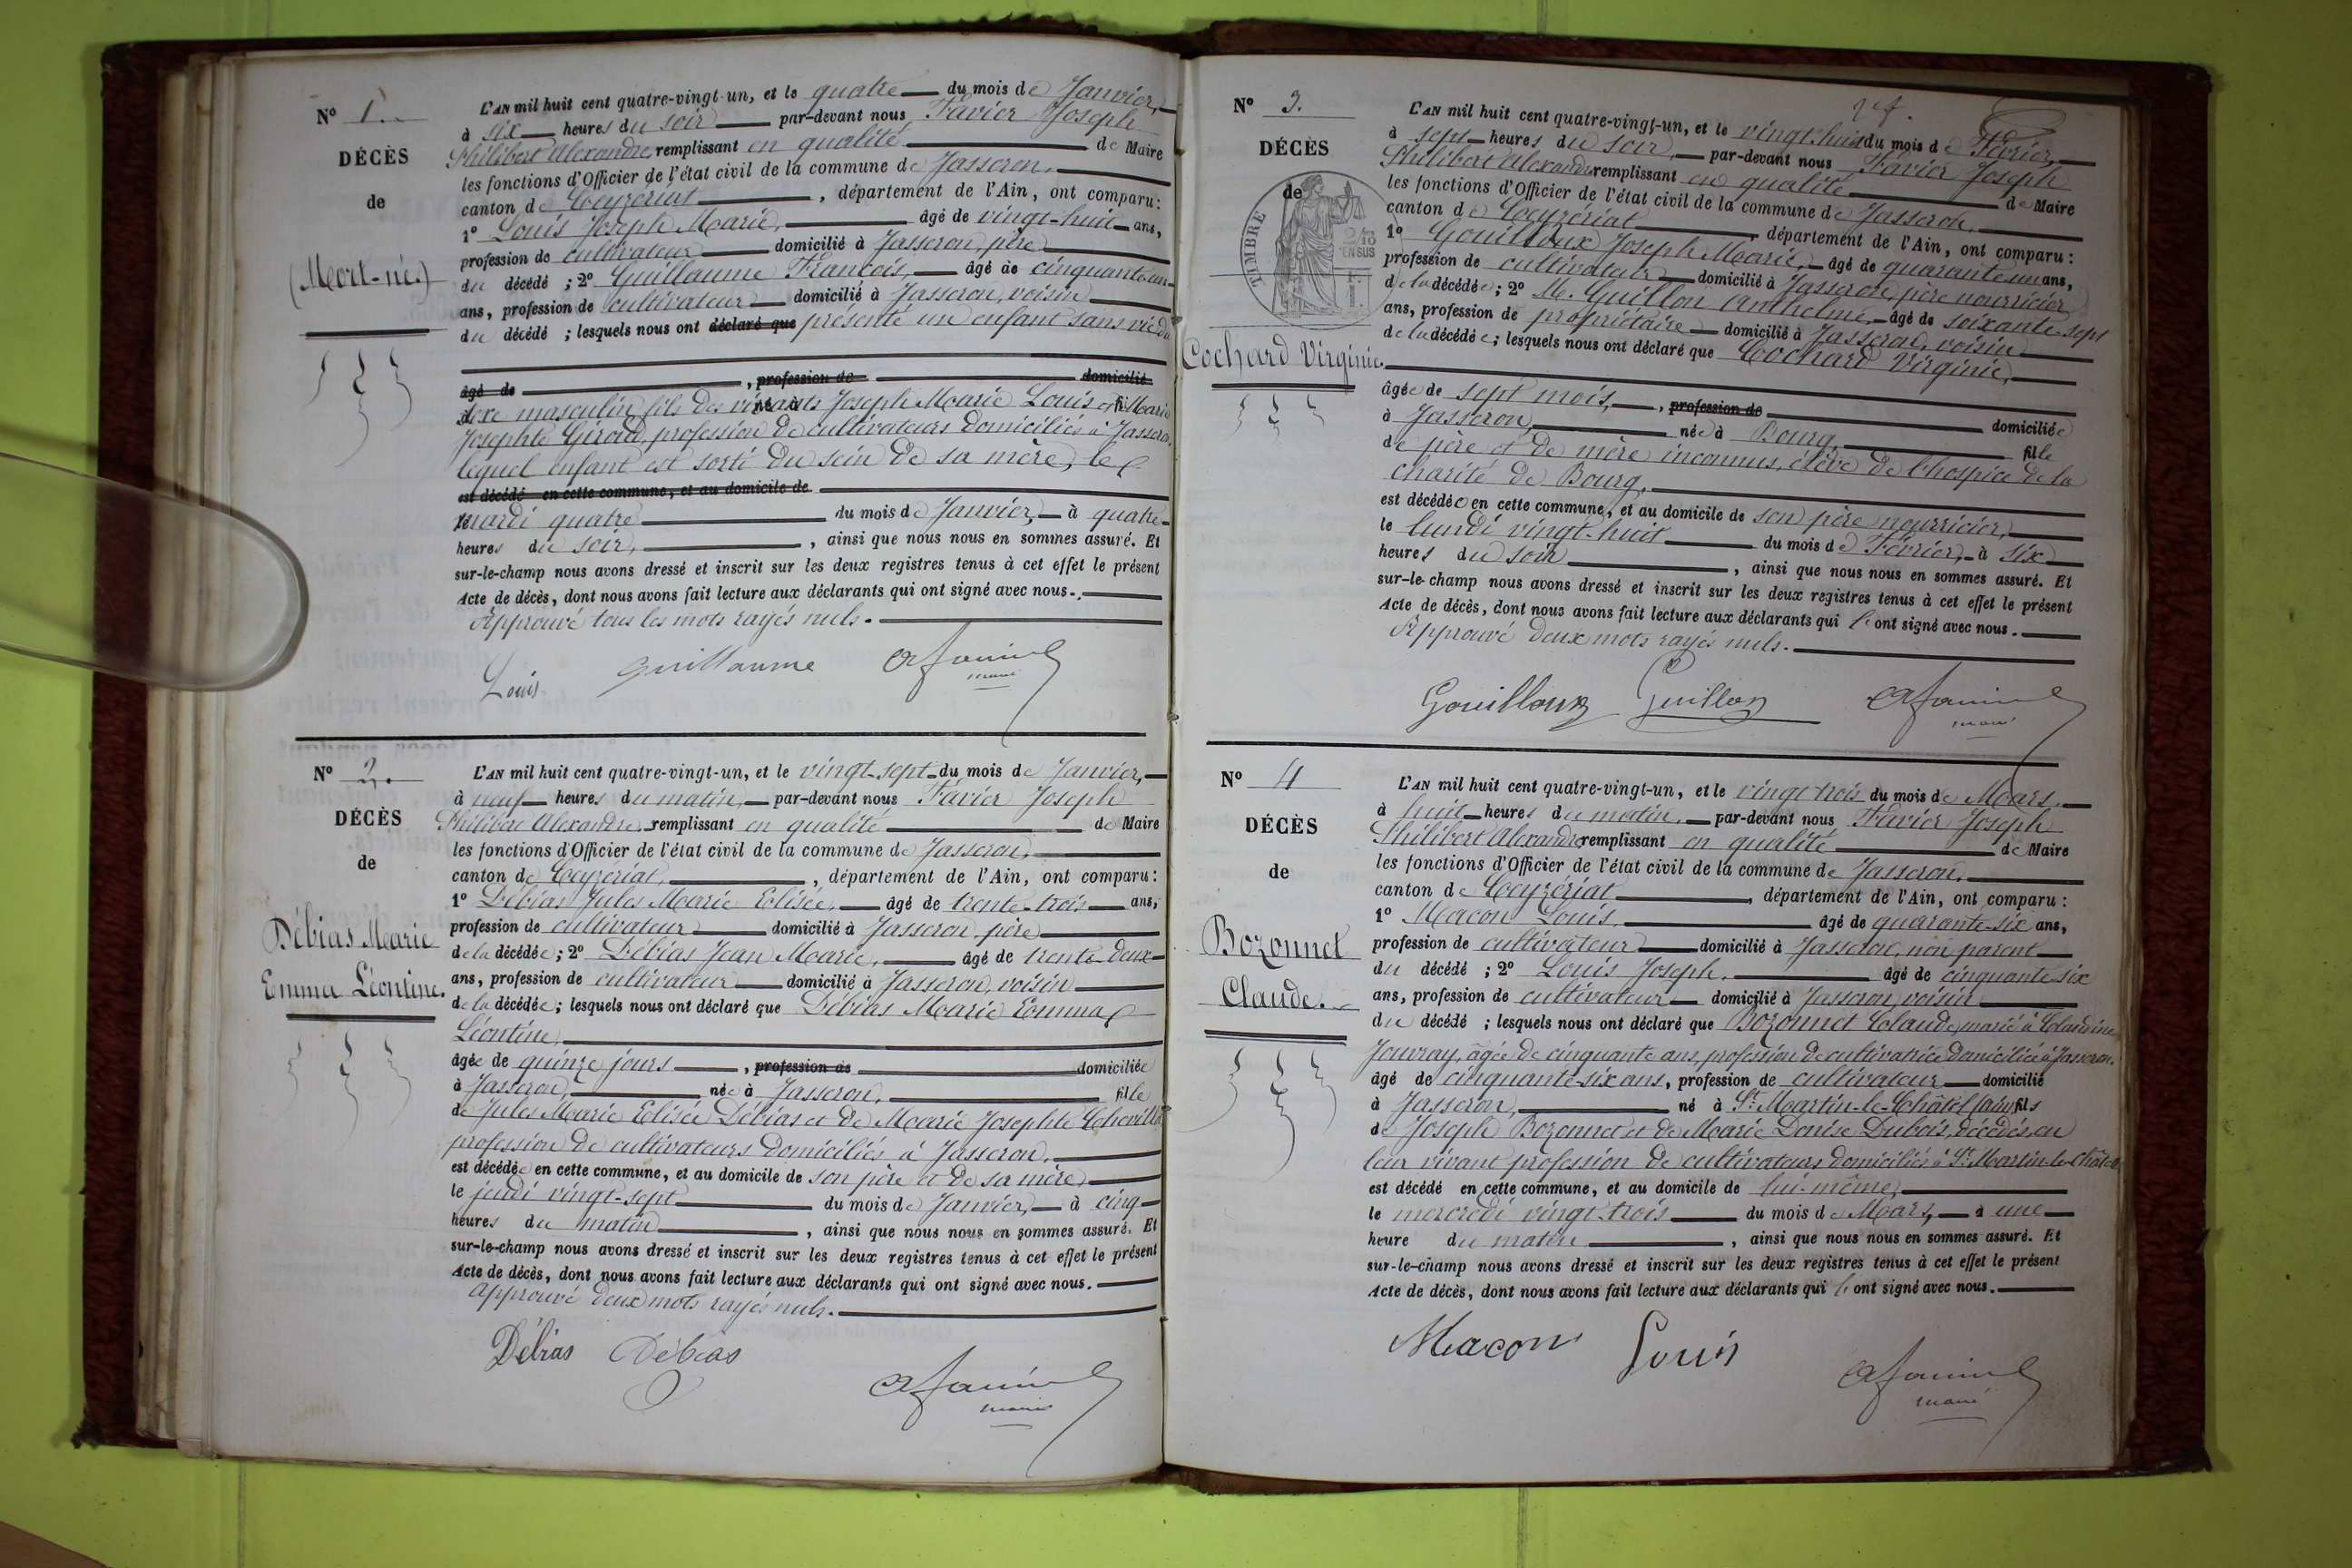 N° 1.
DÉCÈS
de
(Mort-né.)
L'AN mil huit cent quatre-vingt-un, et le quatre du mois de Janvier,
à six heures du soir par-devant nous Favier Joseph
Philibert Alexandre, remplissant en qualité de Maire
les fonctions d'Officier de l'état civil de la commune de Jasseron,
canton de Ceyzériat, département de l'Ain, ont comparu :
1° Louis Joseph Marie, âgé de vingt-huit ans,
profession de cultivateur domicilié à Jasseron, père
du décédé ; 2° Guillaume François, âgé de cinquante-un
ans, profession de cultivateur domicilié à Jasseron, voisin
du décédé ; lesquels nous ont déclaré que présenté un enfant sans vie du
âgé de , profession de domicilié
sexe masculin fils des vivants Joseph Marie Louis et Marie
Josephte Giroud, profession de cultivateurs domiciliés à Jasseron,
lequel enfant est sorti du sein de sa mère, le
est décédé en cette commune, et au domicile de
mardi quatre du mois de Janvier, à quatre
heures du soir, ainsi que nous nous en sommes assuré. Et
sur-le-champ nous avons dressé et inscrit sur les deux registres tenus à cet effet le présent
Acte de décès, dont nous avons fait lecture aux déclarants qui ont signé avec nous.
Approuvé tous les mots rayés nuls.
Louis Guillaume Afavier
maire
N° 2.
DÉCÈS
de
Débias Marie
Emma Léontine.
L'AN mil huit cent quatre-vingt-un, et le vingt-sept du mois de Janvier,
à neuf heures du matin, par-devant nous Favier Joseph
Philibert Alexandre remplissant en qualité de Maire
les fonctions d'Officier de l'état civil de la commune de Jasseron,
canton de Ceyzériat, département de l'Ain, ont comparu :
1° Débias Jules Marie Elisée, âgé de trente-trois ans,
profession de cultivateur domicilié à Jasseron, père
de la décédée ; 2° Débias Jean Marie, âgé de trente-deux
ans, profession de cultivateur domicilié à Jasseron, voisin
de la décédée ; lesquels nous ont déclaré que Débias Marie Emma
Léontine,
âgée de quinze jours , profession de domiciliée
à Jasseron, née à Jasseron, fille
de Jules Marie Elisée Débias et de Marie Josephte
profession de cultivateurs domiciliés à Jasseron,
est décédée en cette commune, et au domicile de son père et de sa mère
le jeudi vingt-sept du mois de Janvier, à cinq
heures du matin, ainsi que nous nous en sommes assuré. Et
sur-le-champ nous avons dressé et inscrit sur les deux registres tenus à cet effet le présent
Acte de décès, dont nous avons fait lecture aux déclarants qui ont signé avec nous.
Approuvé deux mots rayés nuls.
Débias Débias Afavier
maire
N° 3.
DÉCÈS
de
TIMBRE
2/10
EN SUS
Cochard Virginie.
L'AN mil huit cent quatre-vingt-un, et le vingt-huit du mois de Février,
à sept heures du soir, par-devant nous Favier Joseph
Philibert Alexandre remplissant en qualité de Maire
les fonctions d'Officier de l'état civil de la commune de Jasseron,
canton de Ceyzériat, département de l'Ain, ont comparu :
1° Gouilloux Joseph Marie, âgé de quarante-un ans,
profession de cultivateur domicilié à Jasseron, père nourricier
de la décédée ; 2° M. Guillon Anthelme, âgé de soixante-sept
ans, profession de propriétaire domicilié à Jasseron, voisin
de la décédée ; lesquels nous ont déclaré que Cochard Virginie,
âgée de sept mois, , profession de domiciliée
à Jasseron, née à Bourg, fille
de père et de mère inconnus, élève de l'hospice de la
charité de Bourg,
est décédée en cette commune, et au domicile de son père nourricier,
le lundi vingt-huit du mois de Février, à six
heures du soir, ainsi que nous nous en sommes assuré. Et
sur-le-champ nous avons dressé et inscrit sur les deux registres tenus à cet effet le présent
Acte de décès, dont nous avons fait lecture aux déclarants qui l'ont signé avec nous.
Approuvé deux mots rayés nuls.
Gouilloux Guillon Afavier
maire
N° 4
DÉCÈS
de
Bozonnet
Claude.
L'AN mil huit cent quatre-vingt-un, et le vingt-trois du mois de Mars,
à huit heures du matin, par-devant nous Favier Joseph
Philibert Alexandre remplissant en qualité de Maire
les fonctions d'Officier de l'état civil de la commune de Jasseron,
canton de Ceyzériat, département de l'Ain, ont comparu :
1° Macon Louis, âgé de quarante-six ans,
profession de cultivateur domicilié à Jasseron, non parent
du décédé ; 2° Louis Joseph, âgé de cinquante-six
ans, profession de cultivateur domicilié à Jasseron, voisin
du décédé ; lesquels nous ont déclaré que Bozonnet Claude, marié à Claudine
Jouvray, âgée de cinquante ans, profession de cultivatrice domiciliée à Jasseron,
âgé de cinquante-six ans, profession de cultivateur domicilié
à Jasseron, né à St Martin-le-Châtel (Ain) fils
de Joseph Bozonnet et de Marie Denise Dubois, décédés, en
leur vivant profession de cultivateurs domiciliés à St Martin-le-Châtel
est décédé en cette commune, et au domicile de lui-même,
le mercredi vingt-trois du mois de Mars, à une
heure du matin, ainsi que nous nous en sommes assuré. Et
sur-le-champ nous avons dressé et inscrit sur les deux registres tenus à cet effet le présent
Acte de décès, dont nous avons fait lecture aux déclarants qui l'ont signé avec nous.
Macon Louis Afavier
maire